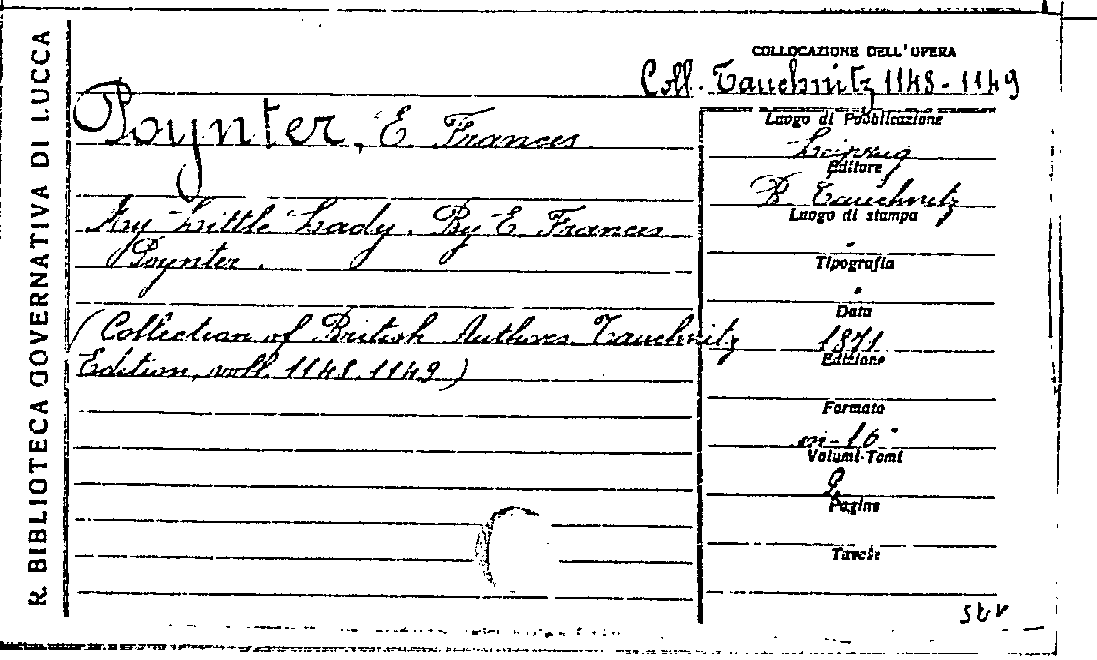 R. BIBLIOTECA GOVERNATIVA DI LUCCA
COLLOCAZIONE DELL'OPERA
Coll. Tauchnitz 1148-1149
Poynter, E. Frances
My Little Lady. By E. Frances
Poynter.
(Collection of British Authors Tauchnitz
Edition, voll. 1148.1149)
Luogo di Pubblicazione
Leipzig
Editore
B. Tauchnitz
Luogo di stampa
Tipografia
Data
1871
Edizione
Formato
in-16°
Volumi-Tomi
2
Pagine
Tavole